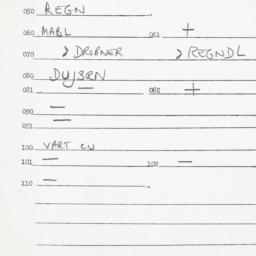 050 REGN
060 MABL 061 +
070 > DROBNER > REGNDL
080 DUJ3RN
081 — 082 +
090 —
091 —
100 VART CU
101 — 102 —
110 —